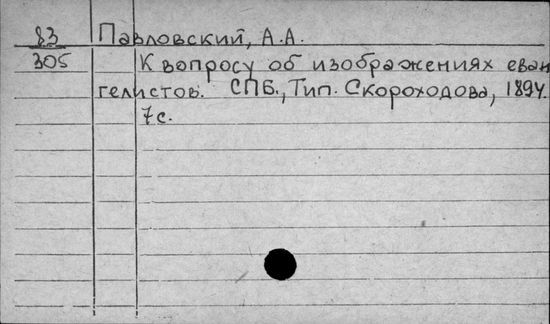 83 Павловский, А.А.
305 К вопросу об изображениях еван
гелистов. СПБ., Тип. Скороходова, 1894.
7с.